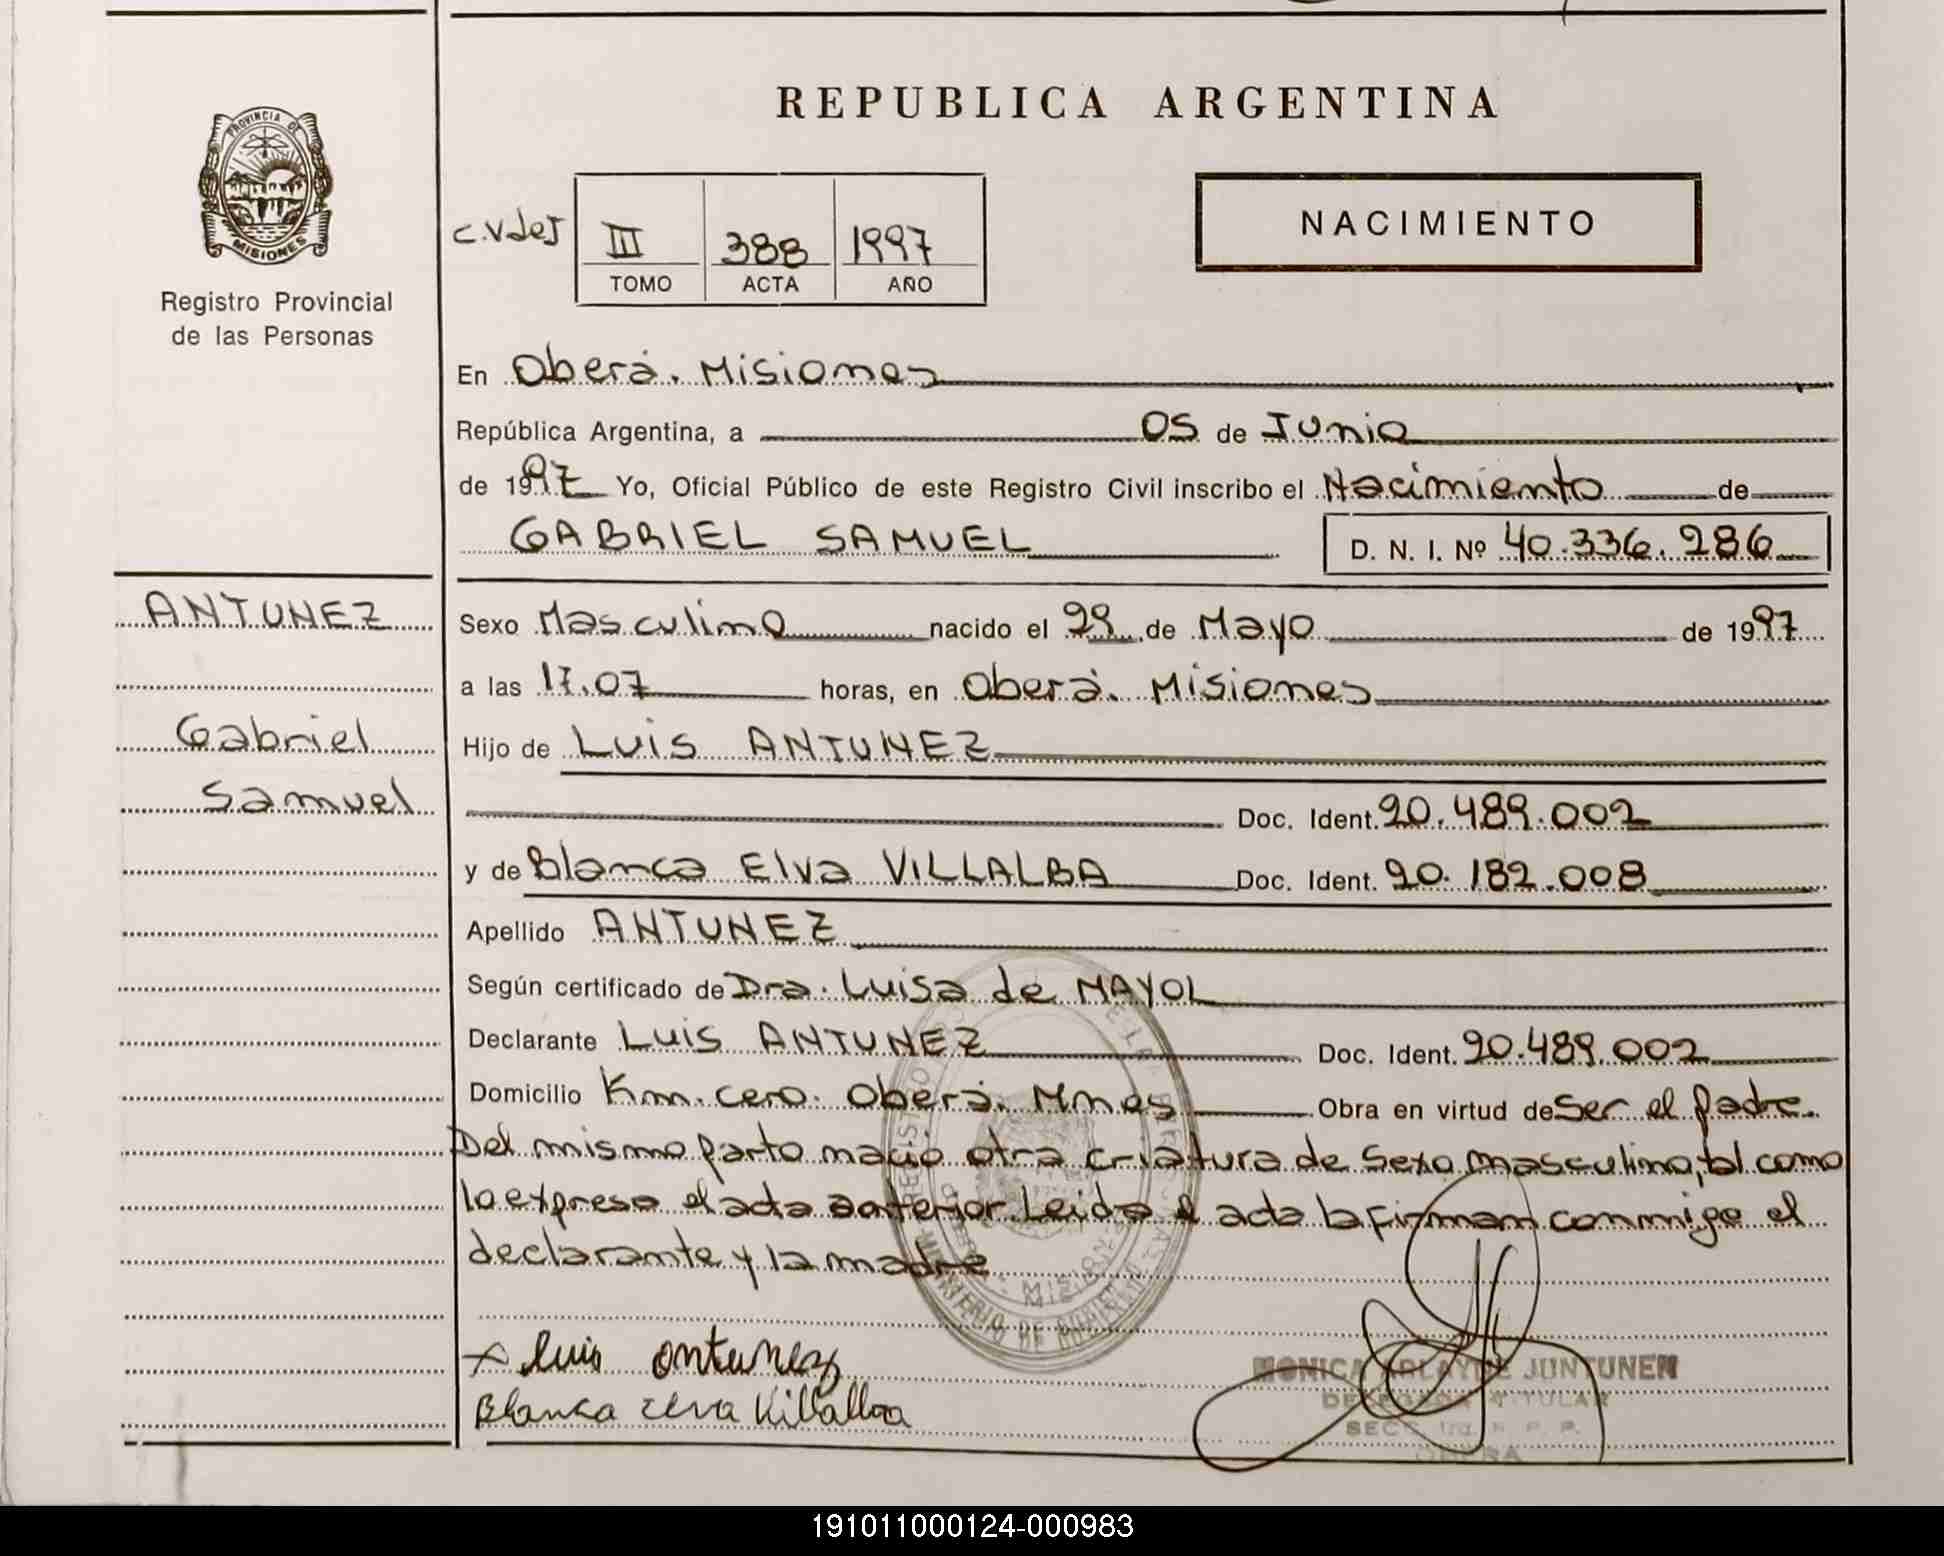 REPUBLICA ARGENTINA
PROVINCIA DE MISIONES
Registro Provincial
de las Personas
C.VdeJ
III 388 1997
TOMO ACTA AÑO
NACIMIENTO
En Oberá. Misiones
República Argentina, a 05 de Junio
de 1997 Yo, Oficial Público de este Registro Civil inscribo el Nacimiento de
GABRIEL SAMUEL D. N. I. Nº 40.336.286
ANTUNEZ
Gabriel
Samuel
Sexo Masculino nacido el 29 de Mayo de 1997
a las 17.07 horas, en Oberá. Misiones
Hijo de Luis ANTUNEZ
Doc. Ident. 20.489.002
y de Blanca Elva VILLALBA Doc. Ident. 20.182.008
Apellido ANTUNEZ
Según certificado de Dra. Luisa de MAYOL
Declarante Luis ANTUNEZ Doc. Ident. 20.489.002
Domicilio Km. cero. Oberá. Mnes Obra en virtud de Ser el padre.
Del mismo parto nació otra criatura de sexo masculino, tal como
lo expresa el acta anterior. Leida el acta la firman conmigo el
declarante y la madre
MISIONES
MINISTERIO DE GOBIERNO
x Luis antunez
Blanca elva Villalba
MONICA ARLAYNE JUNTUNEN
DELEGADA TITULAR
SECC. 1ra. R. P. P.
OBERA
191011000124-000983